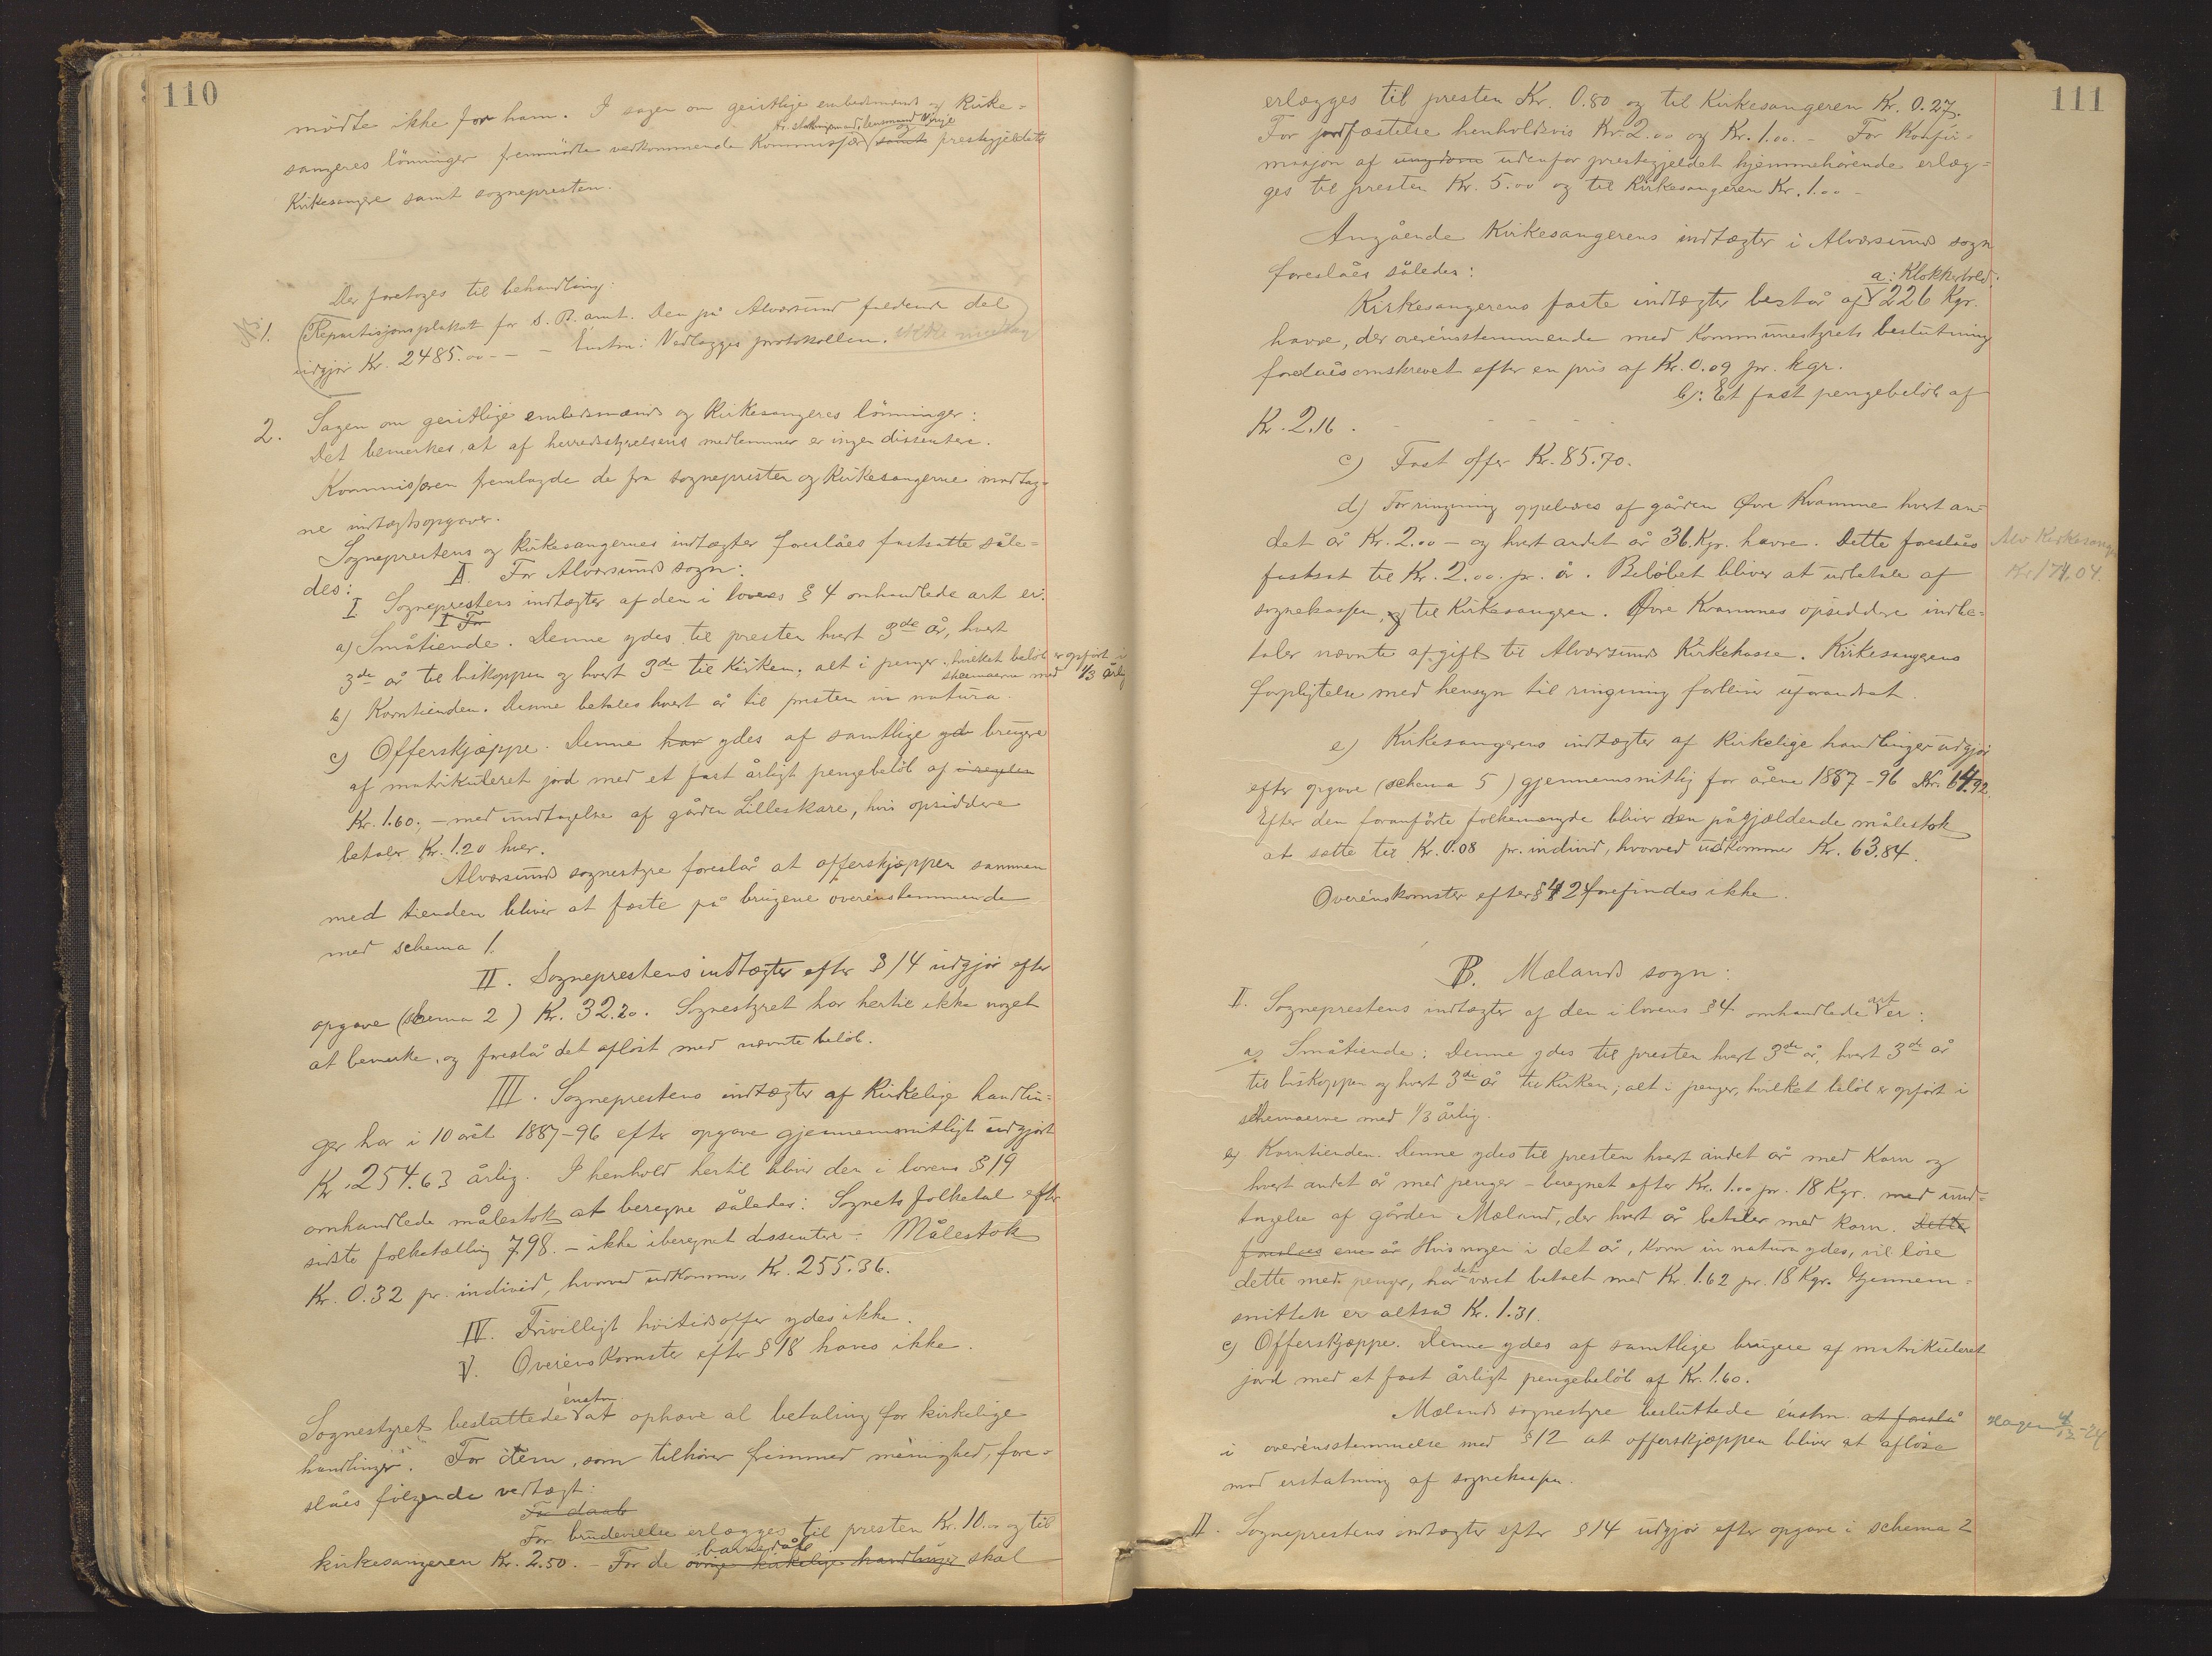 110
mödte ikke for ham. I sagen om geistlige embedsmænds og Kirke=
hr. skattmand, lensmand Virije og
sangeres lönninger fremmödte vedkommende Kommissær samt prestegjeldets
Kirkesangere samt sognepresten.
Der foretoges til behandling:
1. Repartisjonsplakat for S. B. amt. Den på Alversund faldende del
udgjör Kr. 2485.00 - - - Enstm: Vedlægges protokollen. ikke
2. Sagen om geistlige embedsmænds og Kirkesangeres lönninger:
Det bemerkes, at af herredsstyrelsens medlemmer er ingen dissentere.
Kommissæren fremlagde de fra sognepresten og Kirkesangerne modtag=
ne indtægtsopgaver.
Sogneprestens og Kirkesangernes indtægter foreslåes fastsatte såle=
des: A. For Alversunds sogn:
I. Sogneprestens indtægter af den i lovens § 4 omhandlede art er:
I For
a) Småtiende. Denne ydes til presten hvert 3de år, hvert
3de år til biskoppen og hvert 3de til Kirken; alt i penger. hvilket belöb er opfört i
skemaerne med 1/3 årlig
b) Korntienden. Denne betales hvert år til presten in natura.
c) Offerskjæppe. Denne har ydes af samtlige yd brugere
af matrikuleret jord med et fast årligt pengebelöb af i regelen
Kr. 1.60; - med undtagelse af gården Lilleskare, hvis opsiddere
betaler Kr. 1.20 hver.
Alversunds sognestyre foreslår at offerskjæppen sammen
med tienden bliver at fæste på brugene överensstemmende
med schema 1.
II. Sogneprestens indtægter efter § 14 udgjör efter
opgave (schema 2) Kr. 32.20. Sognestyret har hertil ikke noget
at bemerke, og foreslår det aflöst med nævnte belöb.
III. Sogneprestens indtægter af Kirkelige handlin=
ger har i 10 året 1887-96 efter opgave gjennemsnitligt udgjort
Kr. 254.63 årlig. I henhold hertil bliver den i lovens § 19
omhandlede målestok at beregne således: Sognets folketal efter
sidste folketælling 798. - ikke iberegnet dissentere -. Målestok
Kr. 0.32 pr. individ, hvorved udkommer Kr. 255.36.
IV. Frivilligt höitidsoffer ydes ikke.
V. Overenskomster efter § 18 haves ikke.
enstm.
Sognestyret besluttede at ophæve al betaling for kirkelige
handlinger. For dem, som tilhörer fremmed menighed, fore=
slåes fölgende vedtægt:
For daab
For brudevielse erlægges til presten Kr. 10.00 og til
barnedåb
kirkesangeren Kr. 2.50. - For de övrige kirkelige handlinger skal
111
erlægges til presten Kr. 0.80 og til Kirkesangeren Kr. 0.27.
For jordfæstelse henholdsvis Kr. 2.00 og Kr. 1.00. - For Konfir=
masjon af ungdom udenfor prestegjeldet hjemmehörende erlæg=
ges til presten Kr. 5.00 og til Kirkesangeren Kr. 1.00 -
Angående Kirkesangerens indtægter i Alversunds sogn
foreslåes således:
a: Klokkertold:
Kirkesangerens faste indtægter består af 226 Kgr.
havre, der overénsstemmende med Kommunestyrets beslutning
foreslåes omskrevet efter en pris af Kr. 0.09 pr. kgr.
b): Et fast pengebelöb af
Kr. 2.16.
c) Fast offer Kr. 85.70.
d) For ringning oppebæres af gården Övre Kvamme hvert an=
det år Kr. 2.00 - og hvert andet år 36 Kgr. havre. Dette foreslåes
Alv. Kirkesanger
Kr. 174.04.
fastsat til Kr. 2.00 pr. år. Belöbet bliver at udbetale af
sognekassen, og til Kirkesangeren. Övre Kvammes opsiddere indbe=
taler nævnte afgift til Alversunds Kirkekasse. Kirkesangerens
forpligtelse med hensyn til ringning forbliver uforandret.
e) Kirkesangerens indtægter af Kirkelige handlinger udgjör
efter opgave (schema 5) gjennemsnitlig for årene 1887-96 Kr. 64.92.
Efter den foranförte folkemængde bliver den pågjældende målestok
at sætte til Kr. 0.08 pr. individ, hvorved udkommer Kr. 63.84.
Overénskomster efter § 24 forefindes ikke.
B. Mælands sogn:
I. Sogneprestens indtægter af den i lovens § 4 omhandlede art er:
a) Småtiende: Denne ydes til presten hvert 3de år, hvert 3de år
til biskoppen og hvert 3de år til Kirken; alt i penger, hvilket belöb er opfört i
schemaerne med 1/3 årlig.
b) Korntienden. Denne ydes til presten hvert andet år med Korn og
hvert andet år med penger - beregnet efter Kr. 1.00 pr. 18 Kgr. med und=
tagelse af gården Mæland, der hvert år betaler med korn. Dette
foreslåes en år Hvis nogen i det år, Korn in natura ydes, vil löse
dette med penger, har det været betalt med Kr. 1.62 pr. 18 Kgr. Gjennem=
snittet er altså Kr. 1.31.
c) Offerskjæppe. Denne ydes af samtlige brugere af matrikuleret
jord med et fast årligt pengebelöb af Kr. 1.60.
Mælands sognestyre besluttede énstm. at foreslå
i overénsstemmelse med § 12 at offerskjæppen bliver at aflöse
mod erstatning af sognekassen.
II. Sogneprestens indtægter efter § 14 udgjör efter opgave i schema 2